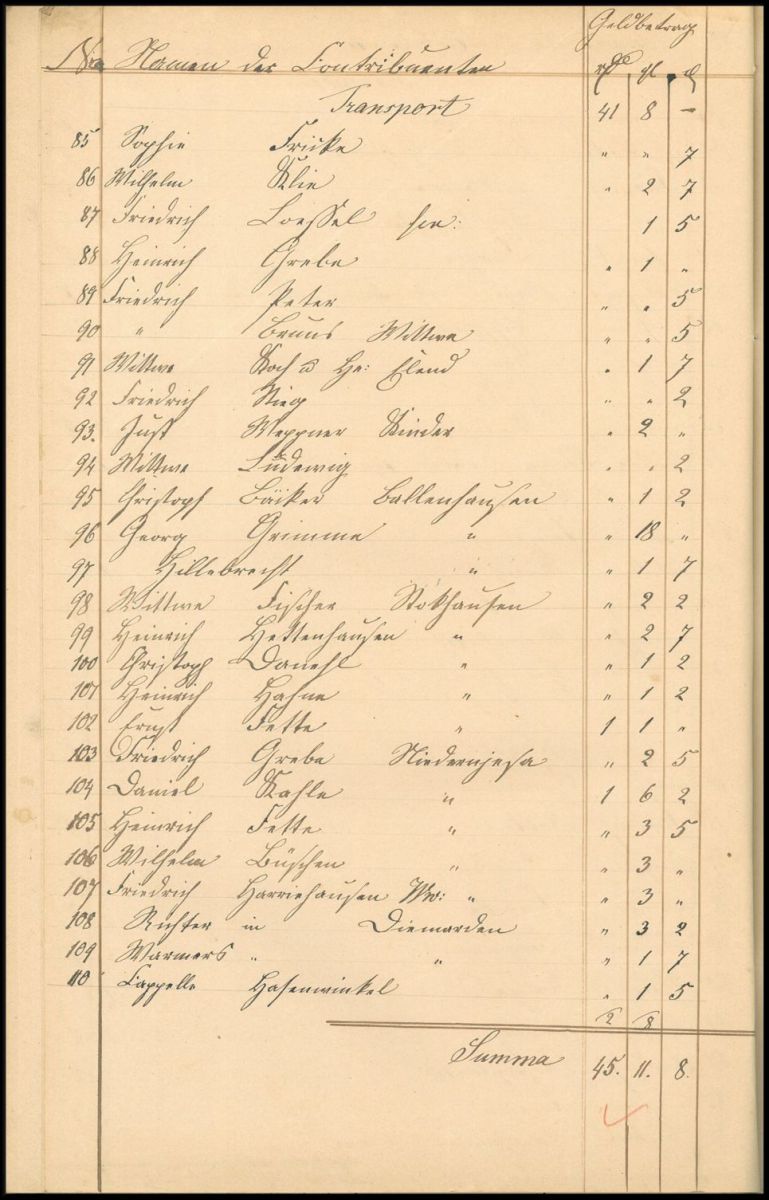 Geldbetrag
Nro Namen der Contribuenten rth gl d
Transport 41 8 –
85 Sophie Fricke " " 7
86 Wilhelm Klie " 2 7
87 Friedrich Loessel sen: 1 5
88 Heinrich Grebe " 1 "
89 Friedrich Peter " " 5
90 " Bruns Wittwe " " 5
91 Wittwe Koch u He: Elend " 1 7
92 Friedrich Kieg " " 2
93. Just Meppner Kinder " 2 "
94 Wittwe Ludewig " " 2
95 Christoph Bäiker Ballenhausen " 1 2
96 Georg Grimme " " 18 "
97 Hillebrecht " " 1 7
98 Wittwe Fischer Stokhausen " 2 2
99 Heinrich Hettenhausen " " 2 7
100 Christoph Danehl " " 1 2
101 Heinrich Hahne " " 1 2
102 Ernst Fette " 1 1 "
103 Friedrich Grebe Niedernjesa " 2 5
104 Daniel Kahle " 1 6 2
105 Heinrich Fette " " 3 5
106 Wilhelm Büschen " " 3 "
107 Friedrich Harriehausen Ww: " " 3 "
108 Richter in Diemarden " 3 2
109 Warmers " " " 1 7
110 Cappelle Hasenwinkel " 1 5
2 8
Summa 45. 11. 8.